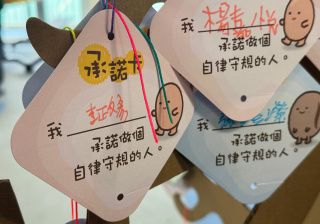 承諾卡
我
承諾做個
自律守規的人。
我 楊嘉悅
承諾做個
自律守規的人。
我
承諾做個
自律守規的人。